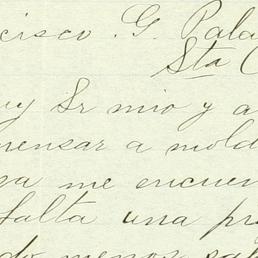 cisco. G. Pala
Sta C
uy Sr mio y a
pensar a mold
sa me encuen
falta una pr
do menos sab